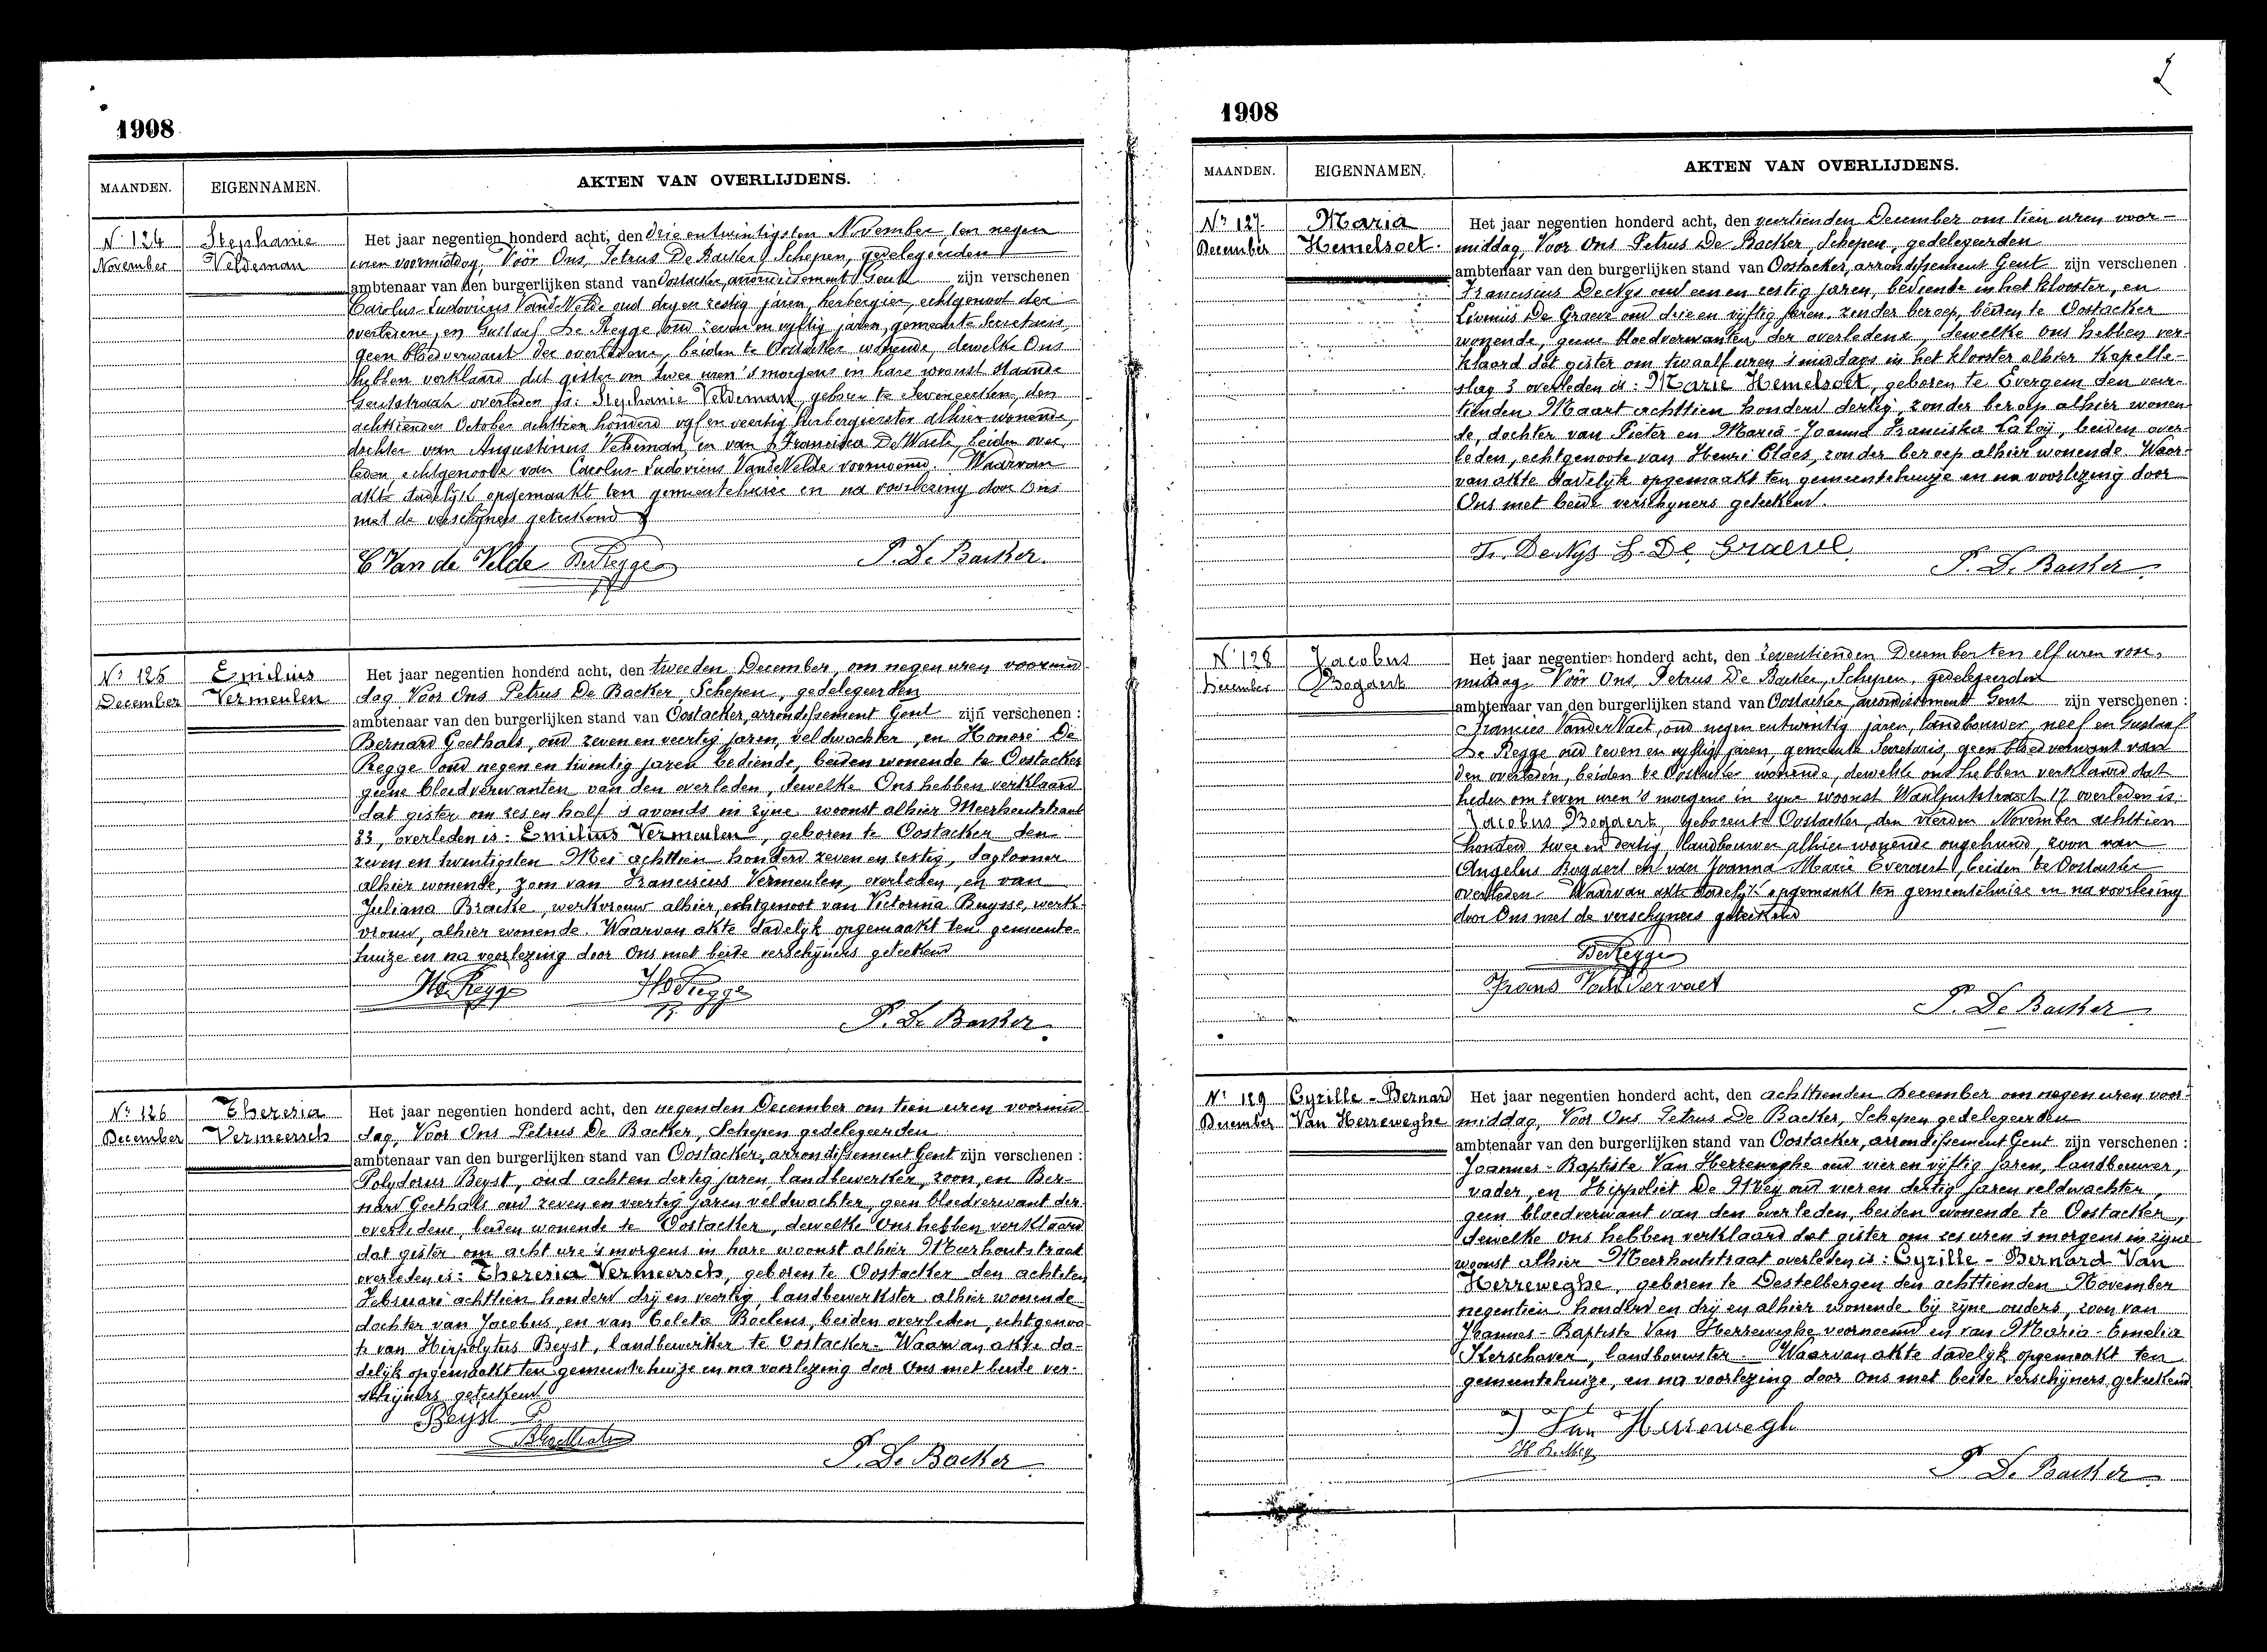 1908
MAANDEN. EIGENNAMEN. AKTEN VAN OVERLIJDENS.
N. 124
November
Stephanie
Veldeman
Het jaar negentien honderd acht, den drie entwintigsten November ten negen
uren voormiddag, Vöör Ons, Petrus De Backer Schepen, gedelegeerden
ambtenaar van den burgerlijken stand van Oostacker, arrondissement Gent zijn verschenen
Carolus-Ludovicus Vande Velde oud dry en zestig jaren, herbergier, echtgenoot der
overledene, en Gustaaf De Regge oud zeven en vyftig jaren, gemeente Secretaris,
geen bloedverwant der overledene, beiden te Oostacker wonende, dewelke Ons
hebben verklaard dat gister om twee uren 's morgens in hare woonst staande
Gentstraat overleden is: Stephanie Veldeman, geboren te Seveneecken, den
achttienden October achttien honderd vyf en veertig herbergierster alhier wonende,
dochter van Augustinus Veldeman, en van Francisca De Waele, beiden over-
leden, echtgenoote van Carolus-Ludovicus VandeVelde voornoemd. Waarvan
akte dadelyk opgemaakt ten gemeentehuize en na voorlezing door Ons
met de verschyners geteekend
C Van de Velde DeRegge P. De Backer.
N. 125
December
Emilius
Vermeulen
Het jaar negentien honderd acht, den tweeden December, om negen uren voormid-
dag Voor Ons Petrus De Backer, Schepen, gedelegeerden
ambtenaar van den burgerlijken stand van Oostacker, arrondissement Gent zijn verschenen :
Bernard Goethals, oud zeven en veertig jaren, veldwachter, en Honoré De
Regge oud negen en twintig jaren bediende, beiden wonende te Oostacker
geene bloedverwanten van den overleden, dewelke Ons hebben verklaard
dat gister om zes en half 's avonds in zyne woonst alhier Meerhoutstraat
33, overleden is: Emilius Vermeulen, geboren te Oostacker den
zeven en twentigsten Mei achttien honderd zeven en sestig, daglooner
alhier wonende, zoon van Franciscus Vermeulen, overleden, en van
Juliana Bracke, werkvrouw alhier, echtgenoot van Victorina Buysse, werk-
vrouw, alhier wonende. Waarvan akte dadelijk opgemaakt ten gemeente-
huize en na voorlezing door Ons met beide verschijners geteekend
HDeRegge
P. De Backer.
N. 126
December
Theresia
Vermeersch
Het jaar negentien honderd acht, den negenden December om tien uren voormid-
dag, Voor Ons Petrus De Backer, Schepen gedelegeerden
ambtenaar van den burgerlijken stand van Oostacker, arrondissement Gent zijn verschenen :
Polydorus Beyst, oud achten dertig jaren, landbewerker, zoon, en Ber-
nard Goethals oud zeven en veertig jaren veldwachter, geen bloedverwant der
overledene, beiden wonende te Oostacker, dewelke Ons hebben verklaard
dat gister om acht ure 's morgens in hare woonst alhier Meerhoutstraat
overleden is: Theresia Vermeersch, geboren te Oostacker den achtsten
Februari achttien honderd drij en veertig, landbewerkster alhier wonende
dochter van Jacobus, en van Coleta Boelens, beiden overleden, echtgenoo-
te van Hippolytus Beyst, landbewerker te Oostacker. Waarvan akte da-
delijk opgemaakt ten gemeentehuize en na voorlezing door Ons met beide ver-
schijners geteekend
Beyst P.
BGoethals
P. De Backer
1908
MAANDEN. EIGENNAMEN. AKTEN VAN OVERLIJDENS.
N. 127.
December
Maria
Hemelsoet.
Het jaar negentien honderd acht, den veertienden December om tien uren voor-
middag, Voor Ons Petrus De Backer, Schepen, gedelegeerden
ambtenaar van den burgerlijken stand van Oostacker, arrondissement Gent zijn verschenen
Franciscus DeNys oud een en sestig jaren, bediende in het klooster, en
Livinus De Graeve oud drie en vijftig jaren, zonder beroep, beiden te Oostacker
wonende, geene bloedverwanten der overledene, dewelke Ons hebben ver-
klaard dat gister om twaalf uren 's middags in het klooster alhier Kapelle-
slag 3 overleden is: Marie Hemelsoet, geboren te Evergem den veer-
tienden Maart achttien honderd dertig, zonder beroep alhier wonen-
de, dochter van Pieter en Maria-Joanna Franciska Laloy, beiden over-
leden, echtgenoote van Henri Claes, zonder beroep alhier wonende. Waar-
van akte dadelyk opgemaakt ten gemeentehuize en na voorlezing door
Ons met beide verschyners geteekend.
Fr. DeNys L. De Graeve P. De Backer
N. 128
December
Jacobus
Bogaert
Het jaar negentien honderd acht, den zeventienden December ten elf uren voor-
middag, Vöör Ons, Petrus De Backer, Schepen, gedelegeerden
ambtenaar van den burgerlijken stand van Oostacker, arrondissement Gent zijn verschenen :
Francies VanderVaet, oud negen entwentig jaren, landbouwer, neef en Gustaaf
De Regge oud zeven en vyftig jaren, gemeente Secretaris, geen bloedverwant van
den overleden, beiden te Oostacker wonende, dewelke ons hebben verklaard dat
heden om zeven uren 's morgens in zyne woonst Waalputstraat 17 overleden is:
Jacobus Bogaert, geboren te Oostacker, den vierden November achttien
honderd twee en dertig, landbouwer alhier wonende ongehuwd, zoon van
Angelus Bogaert en van Joanna Marie Everaert, beiden te Oostacker
overleden. Waarvan akte dadelyk opgemaakt ten gemeentehuize en na voorlezing
door Ons met de verschyners geteekend
DeRegge
Frans Vandervaet
P. De Backer
N. 129
December
Cyrille-Bernard
Van Herreweghe
Het jaar negentien honderd acht, den achttienden December om negen uren voor-
middag, Voor Ons Petrus De Backer, Schepen gedelegeerden
ambtenaar van den burgerlijken stand van Oostacker, arrondissement Gent zijn verschenen :
Joannes-Baptiste Van Herreweghe oud vier en vijftig jaren, landbouwer,
vader, en Hippoliet De Mey oud vier en dertig jaren veldwachter,
geen bloedverwant van den overleden, beiden wonende te Oostacker,
dewelke Ons hebben verklaard dat gister om zes uren 's morgens in zijne
woonst alhier Meerhoutstraat overleden is: Cyrille-Bernard Van
Herreweghe, geboren te Destelbergen den achttienden November
negentien honderd en drij en alhier wonende bij zijne ouders, zoon van
Joannes-Baptiste Van Herreweghe voornoemd en van Maria-Emelia
Kerschaver, landbouwster. Waarvan akte dadelyk opgemaakt ten
gemeentehuize, en na voorlezing door Ons met beide verschijners geteekend
J Van Herreweghe
H. De Mey
P. De Backer